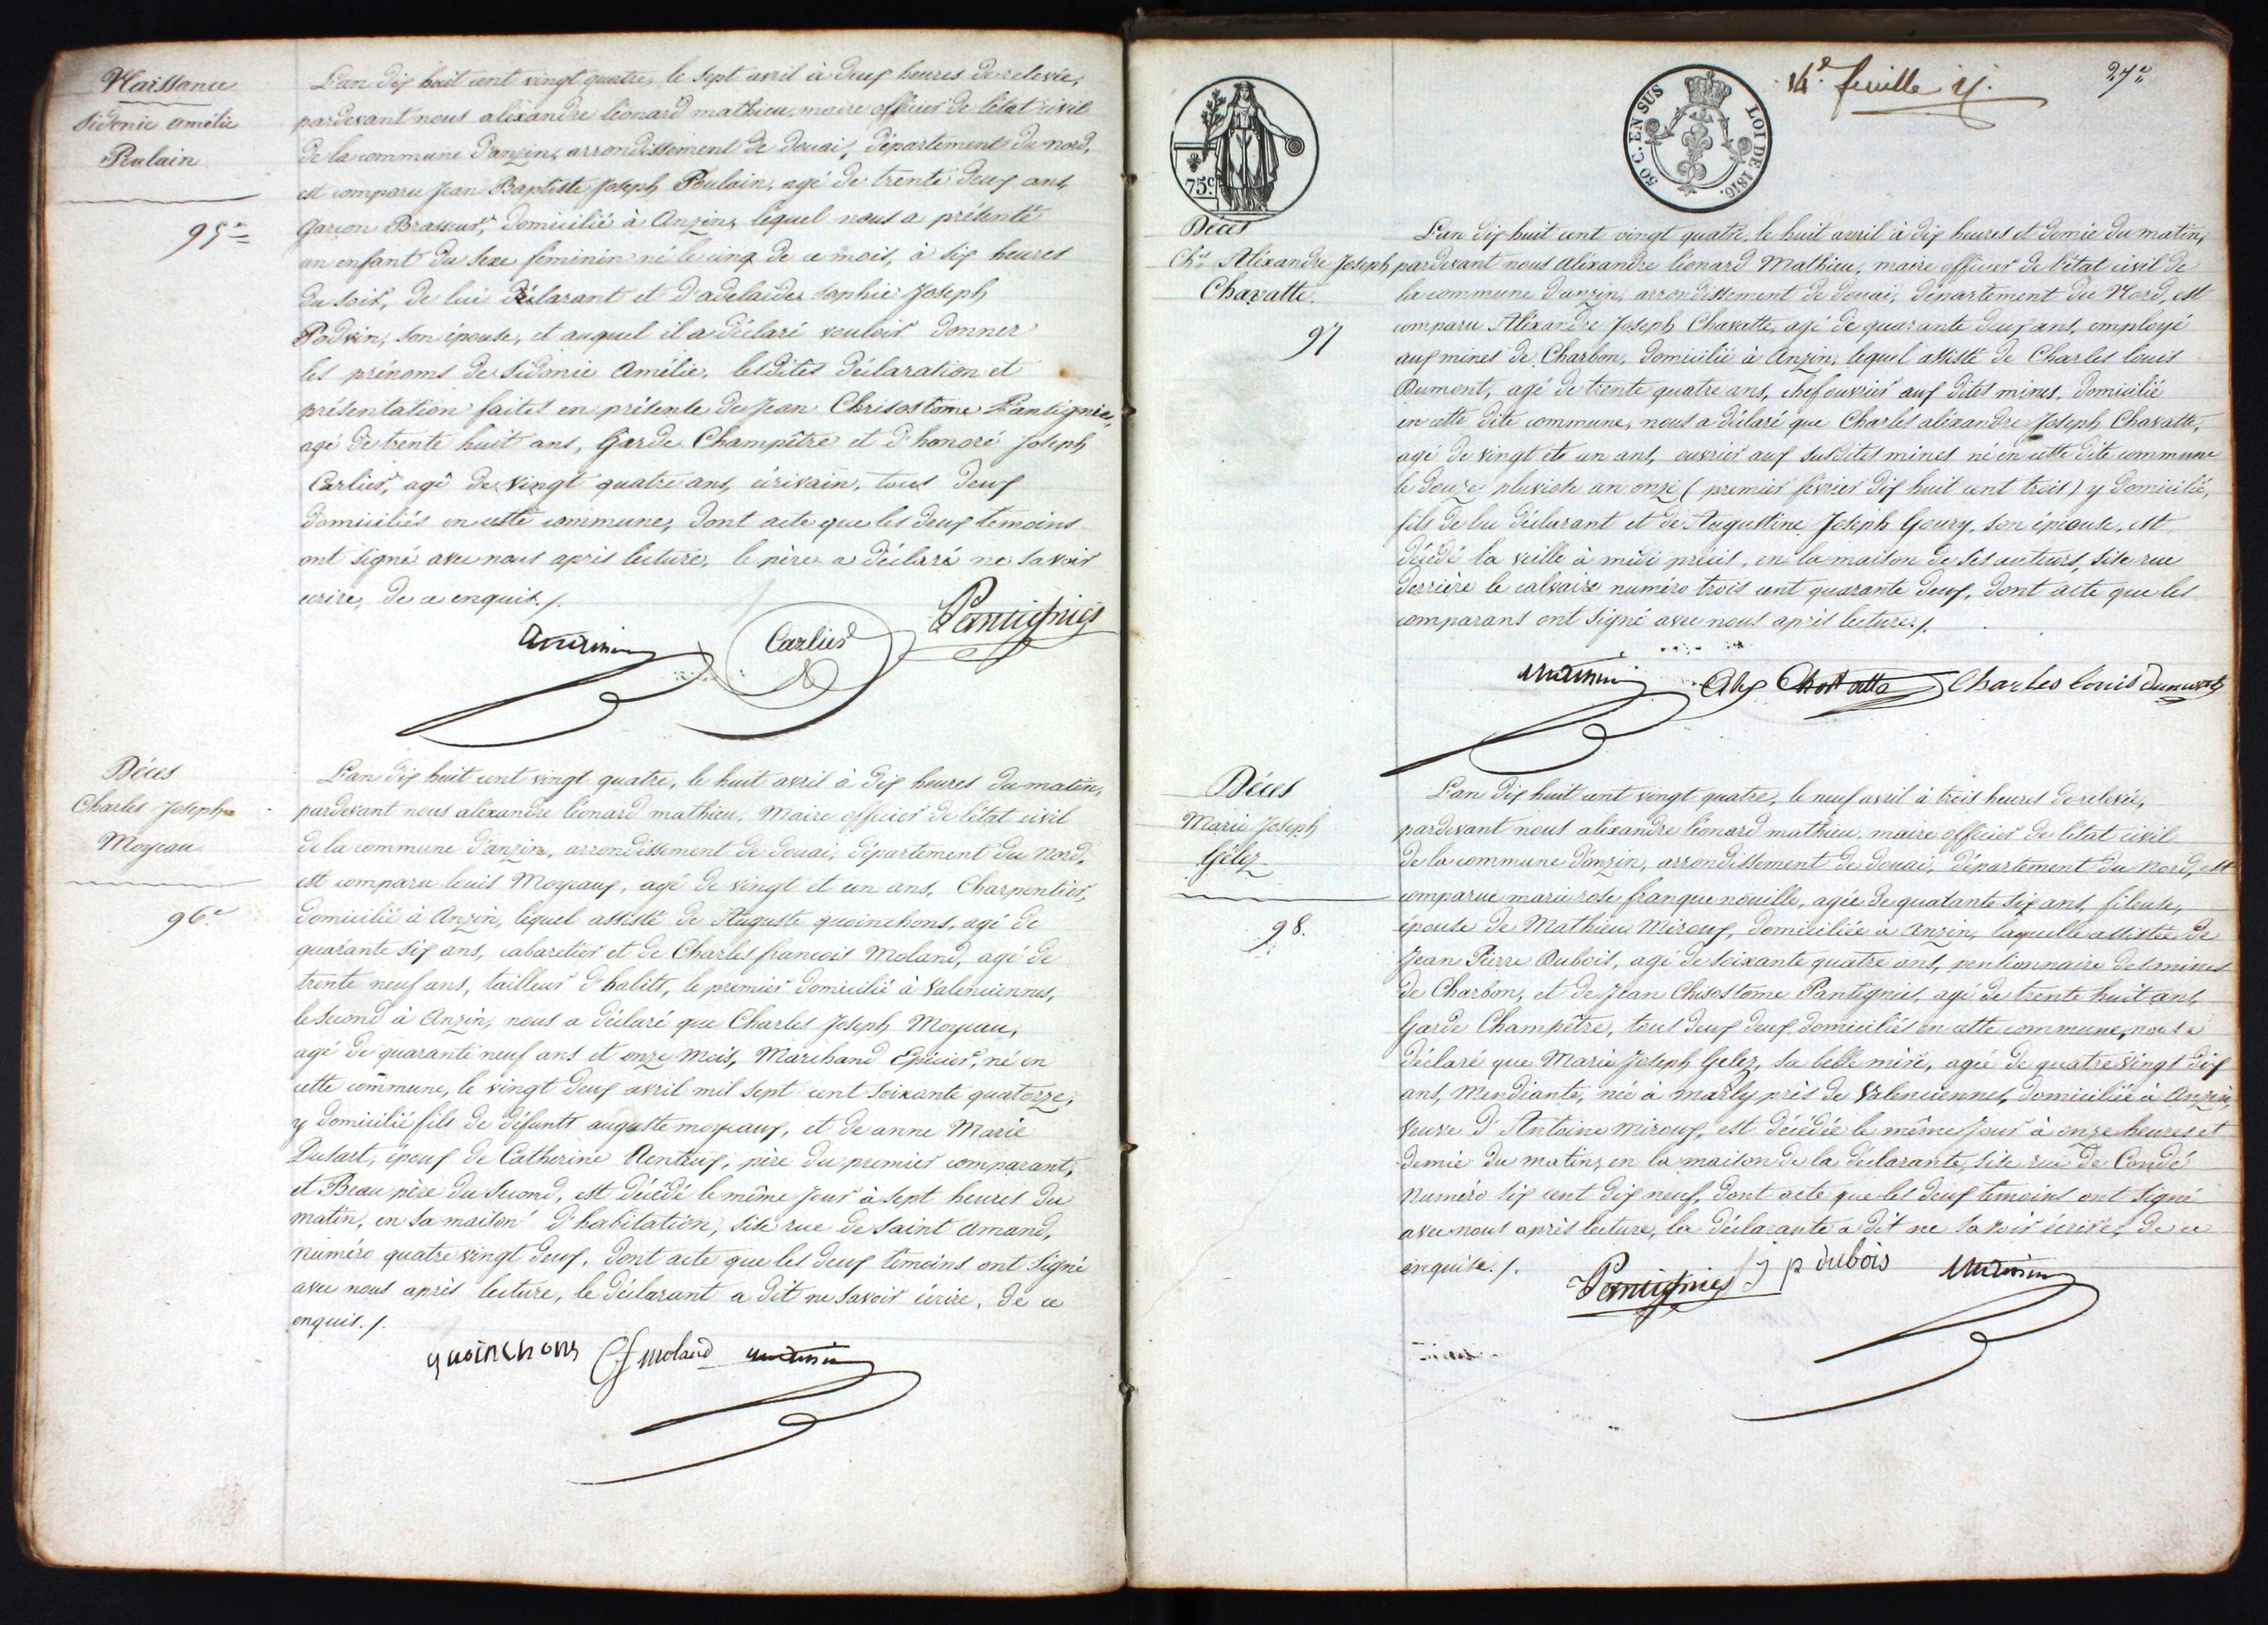 Naissance
Sidonie amélie
Poulain
95e
L'an dix huit cent vingt quatre, le sept avril à deux heures de relevée,
pardevant nous aléxandre léonard mathieu, maire officier de l'état civil
de la commune d'anzin, arrondissement de douai, département du nord,
est comparu Jean Baptiste Joseph Poulain, agé de trente deux ans,
garçon Brasseur, domicilié à Anzin, lequel nous a présenté
un enfant du sexe féminin né le cinq de ce mois, à six heures
du soir, de lui déclarant et d'adelaide sophie Joseph
Podvin, son épouse, et auquel il a déclaré vouloir donner
les prénoms de Sidonie Amélie, lesdites déclaration et
présentation faites en présente de Jean Chrisostome Pantignies,
agé de trente huit ans, Garde Champêtre et d'honoré Joseph
Carlier, agé de vingt quatre ans, écrivain, tous deux
domiciliés en cette commune, dont acte que les deux temoins
ont signé avec nous après lecture, le père a déclaré ne savoir
ecrire, de ce enquis./.
Carlier Pantignies
Décès
Charles Joseph
Moyeau
96e
L'an dix huit cent vingt quatre, le huit avril à dix heures du matin,
pardevant nous alexandre léonard mathieu, Maire officier de l'état civil
de la commune d'anzin, arrondissement de douai, département du nord,
est comparu louis Moyeaux, agé de vingt et un ans, Charpentier,
domicilié à Anzin, lequel assisté de Auguste quoinchons, agé de
quarante six ans, cabaretier et de Charles françois Moland, agé de
trente neuf ans, tailleur d'habits, le premier domicilié à Valenciennes,
le second à Anzin, nous a déclaré que Charles Joseph Moyeau,
agé de quarante neuf ans et onze mois, Marchand Epicier, né en
cette commune, le vingt deux avril mil sept cent soixante quatorze,
y domicilié fils de défunts auguste moyeaux, et de anne Marie
Dusart, époux de Catherine , père du premier comparant,
et Beau père du second, est décédé le même jour à sept heures du
matin, en sa maison d'habitation, sise rue de Saint Amand,
numéro quatre vingt deux, dont acte que les deux témoins ont signé
avec nous après lecture, le déclarant a dit ne savoir écrire, de ce
enquis./.
quoinchons Cf moland
14e feuille
27e
75c
50 C. EN SUS LOI DE 1816.
Décès
Ches Aléxandre Joseph
Chavatte
97
L'an dix huit cent vingt quatre, le huit avril à dix heures et demie du matin,
pardevant nous Aléxandre léonard Mathieu, maire officier de l'état civil de
la commune d'anzin, arrondissement de douai, département du Nord, est
comparu Aléxandre Joseph Chavatte, agé de quarante deux ans, employé
aux mines de Charbon, domicilié à Anzin, lequel assisté de Charles louis
Dumont, agé de trente quatre ans, chef ouvrier aux dites mines, domicilié
en cette dite commune, nous a déclaré que Charles aléxandre Joseph Chavatte,
agé de vingt et un ans, ouvrier aux susdites mines né en cette dite commune
le douze pluviose an onze (premier février dix huit cent trois) y domicilié,
fils de lui déclarant et de Augustine Joseph Goury, son épouse, est
décédé la veille à midi précis, en la maison de ses auteurs, sise rue
derrière le calvaire numéro trois cent quarante deux, dont acte que les
comparans ont signé avec nous après lecture./.
Alex Chavatte Charles louis dumont
Décès
Marie Joseph
Gélez
98.
L'an dix huit cent vingt quatre, le neuf avril à trois heures de relevée,
pardevant nous aléxandre léonard mathieu, maire officier de l'état civil
de la commune d'anzin, arrondissement de douai, département du nord, est
comparue marie rose franquenouille, agée de quatante six ans, fileuse,
épouse de Mathieu Miroux, domiciliée à Anzin, laquelle assistée de
Jean Pierre Dubois, agé de soixante quatre ans, pentionnaire des mines
de Charbon, et de Jean Chisostome Pantignies, agé de trente huit ans,
Garde Champêtre, tous deux deux domiciliés en cette commune, nous a
déclaré que Marie Joseph Gelez, sa belle mère, agée de quatre vingt dix
ans, Mendiante, née à marly près de Valenciennes, domiciliée à Anzin,
veuve d'Antoine miroux, est décédée le même jour à onze heures et
demie du matin, en la maison de la déclarante, sise rue de Condé
numéro six cent dix neuf, dont acte que les deux témoins ont signé
avec nous après lecture, la déclarante a dit ne savoir écrire, de ce
enquise./.
Pantignies j p dubois